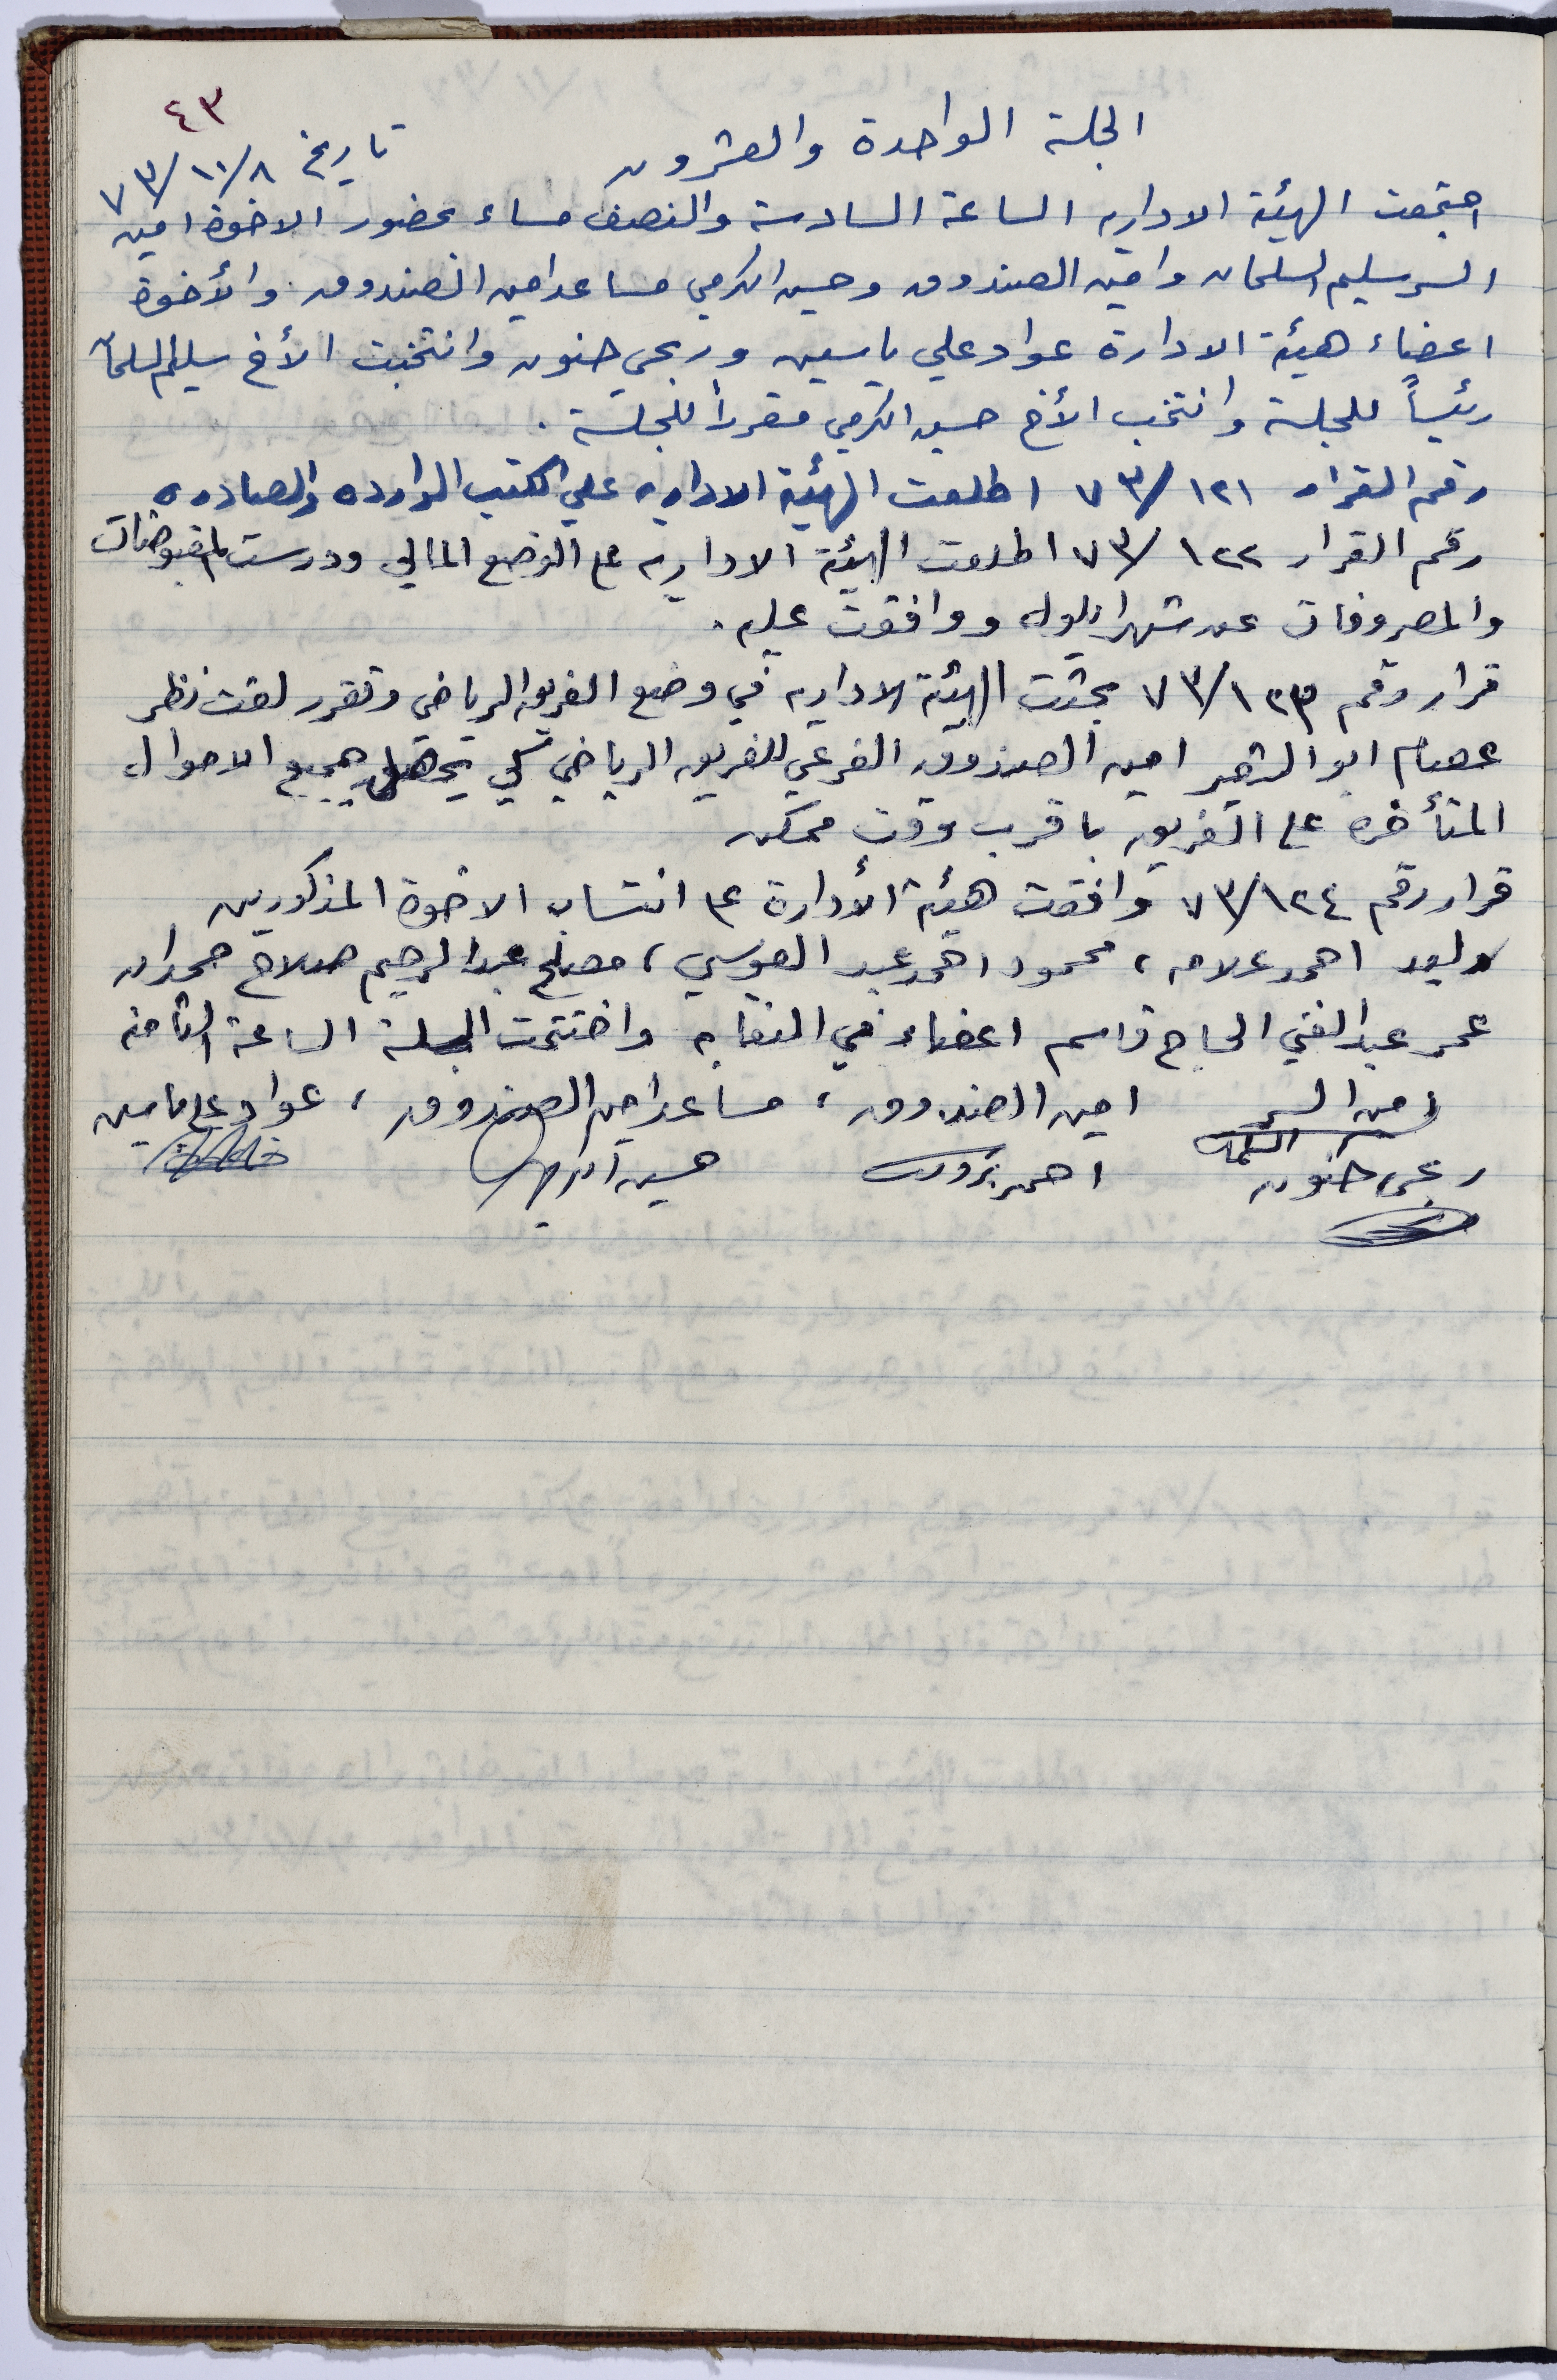 ٤٣
الجلسة الواحدة والعشرون
تاريخ ٧٣/١٠/٨
اجتمعت الهيئة الاداريه الساعة السادسة والنصف مساء بحضور الاخوة امين
السر سليم السلمان وامين الصندوق وحسين الكرمي مساعد امين الصندوق والأخوة
اعضاء هيئة الادارة عواد علي ياسين وربحي حنون وانتخبت الأخ سليم السلمان
رئيساً للجلسة وانتخب الأخ حسين الكرمي مقرراً للجلسة .
رقم القرار ٧٣/١٢١ اطلعت الهيئة الاداريه على الكتب الوارده والصادره
رقم القرار ٧٣/١٢٢ اطلعت الهيئة الاداريه على الوضع المالي ودرست المقبوضات
والمصروفات عن شهر ايلول ووافقت عليه .
قرار رقم ٧٣/١٢٣ بحثت الهيئة الاداريه في وضع الفريق الرياضي وتقرر لفت نظر
عصام ابو الشعر امين الصندوق الفرعي للفريق الرياضي لكي يحصل جميع الاموال
المتأخره على الفريق باقرب وقت ممكن
قرار رقم ٧٣/١٢٤ وافقت هيئة الأدارة على انتساب الاخوة المذكورين
وليد احمد علامه ، محمود احمد عبد الموسي ، مصلح عبد الرحيم صلاح حمدان
عمر عبد الغني الحاج قاسم اعضاء في النقابه واختتمت الجلسة الساعة الثامنه
امين السر امين الصندوق ، مساعد امين الصندوق ، عواد علي ياسين
ربحي حنون احمد حسين الكرمي